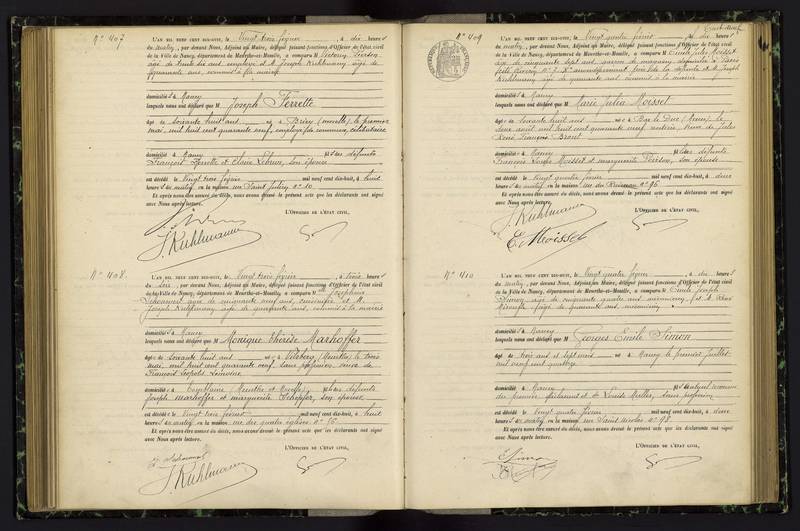 N° 407
L'AN MIL NEUF CENT DIX-HUIT, le Vingt trois février, à dix heures
du matin, par devant Nous, Adjoint au Maire, délégué faisant fonctions d'Officier de l'état civil
de la Ville de Nancy, département de Meurthe-et-Moselle, a comparu M
âgé de trente six ans, employé et M. Joseph Kuhlmann âgé de
quarante ans, commis à la mairie
domiciliés à Nancy
lesquels nous ont déclaré que M Joseph Ferrette
âgé de soixante huit ans né à Briey (Moselle), le premier
mai, mil huit cent quarante neuf, employé de commerce, célibataire
domicilié à Nancy fils des défunts
François Ferrette et Claire Lebrun, son épouse
est décédé le Vingt trois février mil neuf cent dix-huit, à huit
heures du matin, en la maison rue Saint Julien n° 10
Et après nous être assuré du décès, nous avons dressé le présent acte que les déclarants ont signé
avec Nous après lecture.
L'OFFICIER DE L'ÉTAT CIVIL,
J. Kuhlmann
N° 408.
L'AN MIL NEUF CENT DIX-HUIT, le Vingt trois février, à trois heures
du soir, par devant Nous, Adjoint au Maire, délégué faisant fonctions d'Officier de l'état civil
de la Ville de Nancy, département de Meurthe-et-Moselle, a comparu Mme Joséphine
âgée de cinquante neuf ans, cuisinière et M.
Joseph Kuhlmann âgé de quarante ans, commis à la mairie
domiciliés à Nancy
lesquels nous ont déclaré que M Monique Thérèse Marhoffer
âgée de soixante huit ans née à (Meurthe) le trois
mai, mil huit cent quarante neuf, sans profession, veuve de
François Léopold
domiciliée à (Meurthe et Moselle) fille des défunts
Joseph Marhoffer et Marguerite Schaffer, son épouse
est décédée le Vingt trois février mil neuf cent dix-huit, à huit
heures du matin, en la maison rue des quatre églises n°
Et après nous être assuré du décès, nous avons dressé le présent acte que les déclarants ont signé
avec Nous après lecture.
L'OFFICIER DE L'ÉTAT CIVIL,
J. Kuhlmann
N° 409
L'AN MIL NEUF CENT DIX-HUIT, le Vingt quatre février, à dix heures
du matin, par devant Nous, Adjoint au Maire, délégué faisant fonctions d'Officier de l'état civil
de la Ville de Nancy, département de Meurthe-et-Moselle, a comparu M Emile Jules Moisset
âgé de cinquante sept ans, garçon de magasin, domicilié à Paris
frère de la défunte et M. Joseph
Kuhlmann âgé de quarante ans, commis à la mairie
domicilié à Nancy
lesquels nous ont déclaré que M Marie Julia Moisset
âgée de soixante huit ans née à Bar le Duc (Meuse), le
deux avril mil huit cent quarante neuf, rentière, veuve de Jules
René François
domiciliée à Nancy fille des défunts
François Moisset et Marguerite Pierson, son épouse
est décédée le Vingt quatre février mil neuf cent dix-huit, à deux
heures du matin, en la maison rue du n° 96
Et après nous être assuré du décès, nous avons dressé le présent acte que les déclarants ont signé
avec Nous après lecture.
L'OFFICIER DE L'ÉTAT CIVIL,
J. Kuhlmann
E. Moisset
N° 410
L'AN MIL NEUF CENT DIX-HUIT, le Vingt quatre février, à dix heures
du matin, par devant Nous, Adjoint au Maire, délégué faisant fonctions d'Officier de l'état civil
de la Ville de Nancy, département de Meurthe-et-Moselle, a comparu M Emile Joseph
Simon, âgé de cinquante quatre ans, mécanicien, et M.
âgé de quarante ans, mécanicien
domiciliés à Nancy
lesquels nous ont déclaré que M Georges Emile Simon
âgé de trois ans et sept mois né à Nancy le premier juillet
mil neuf cent quatorze
domicilié à Nancy
du premier déclarant et de Louise Muller, sans profession
est décédé le Vingt quatre février mil neuf cent dix-huit, à deux
heures du matin, en la maison rue Saint Nicolas n° 98
Et après nous être assuré du décès, nous avons dressé le présent acte que les déclarants ont signé
avec Nous après lecture.
L'OFFICIER DE L'ÉTAT CIVIL,
E Simon